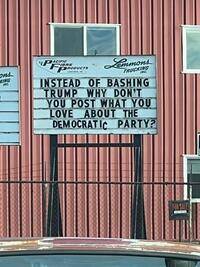 PACIFIC
FIBRE
PRODUCTS
Lemmons
TRUCKING
INC.
INSTEAD OF BASHING
TRUMP WHY DON'T
YOU POST WHAT YOU
LOVE ABOUT THE
DEMOCRATIC PARTY?